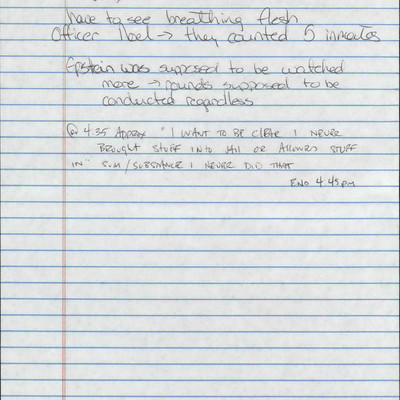 have to see breathing flesh
Officer Noel → they counted 5 inmates
Epstein was supposed to be watched
more → rounds supposed to be
conducted regardless
@ 4:35 Approx "I WANT TO BE CLEAR I NEVER
BROUGHT STUFF INTO JAIL OR ALLOWED STUFF
IN" SUM/SUBSTANCE I NEVER DID THAT
END 4:45pm